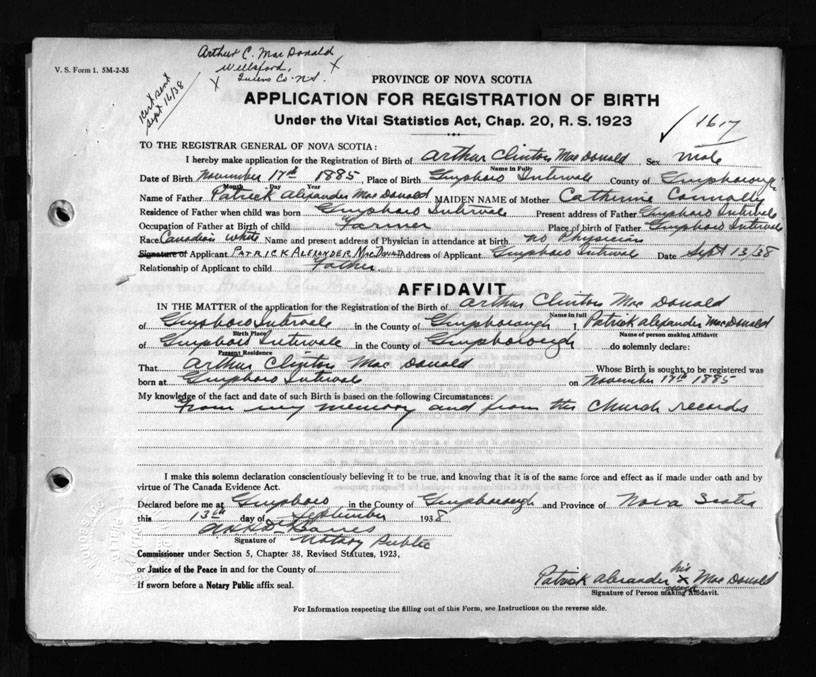 V. S. Form 1. 5M-2-35
Arthur C. MacDonald
Wellsford,
Queens Co. N.S.
X X
Cert sent
Sept 16/38
PROVINCE OF NOVA SCOTIA
APPLICATION FOR REGISTRATION OF BIRTH
Under the Vital Statistics Act, Chap. 20, R. S. 1923
TO THE REGISTRAR GENERAL OF NOVA SCOTIA:
I hereby make application for the Registration of Birth of Arthur Clinton MacDonald, Sex Male
Name in Fully
Date of Birth November 17th 1885, Place of Birth Guysboro Intervale County of Guysborough
Month Day Year
Name of Father Patrick Alexander MacDonald MAIDEN NAME of Mother Catherine Connolly
Residence of Father when child was born Guysboro Intervale Present address of Father Guysboro Intervale
Occupation of Father at Birth of child Farmer Place of birth of Father Guysboro Intervale
Race Canadian White Name and present address of Physician in attendance at birth no Physician
Signature of Applicant PATRICK ALEXANDER MACDONALD Address of Applicant Guysboro Intervale Date Sept 13/38
Relationship of Applicant to child Father
AFFIDAVIT
IN THE MATTER of the application for the Registration of the Birth of Arthur Clinton MacDonald
Name in full
of Guysboro Intervale in the County of Guysborough I, Patrick Alexander MacDonald
Birth Place Name of person making Affidavit
of Guysboro Intervale in the County of Guysborough do solemnly declare:
Present Residence
That Arthur Clinton MacDonald Whose Birth is sought to be registered was
born at Guysboro Intervale on November 17th 1885
My knowledge of the fact and date of such Birth is based on the following Circumstances:
From my memory and from the Church records
I make this solemn declaration conscientiously believing it to be true, and knowing that it is of the same force and effect as if made under oath and by
virtue of The Canada Evidence Act.
Declared before me at Guysboro in the County of Guysborough and Province of Nova Scotia
this 13th day of September 1938
Signature of Notary Public
Commissioner under Section 5, Chapter 38, Revised Statutes, 1923,
or Justice of the Peace in and for the County of
If sworn before a Notary Public affix seal.
his
Patrick Alexander X MacDonald
mark
Signature of Person making Affidavit.
For Information respecting the filling out of this Form, see Instructions on the reverse side.